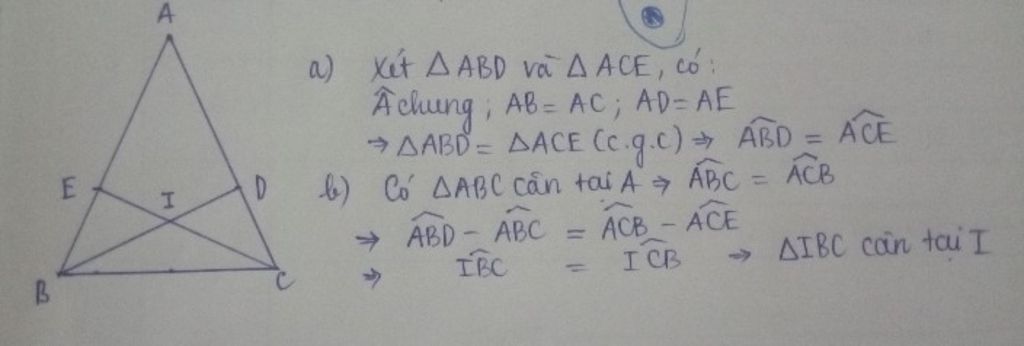 A
E
I
D
B
C
a) Xét △ABD và △ACE, có:
Â chung; AB = AC; AD = AE
⇒ △ABD = △ACE (c.g.c) ⇒ \widehat{ABD} = \widehat{ACE}
b) Có △ABC cân tại A ⇒ \widehat{ABC} = \widehat{ACB}
⇒ \widehat{ABD} - \widehat{ABC} = \widehat{ACB} - \widehat{ACE}
⇒ \widehat{IBC} = \widehat{ICB} ⇒ △IBC cân tại I